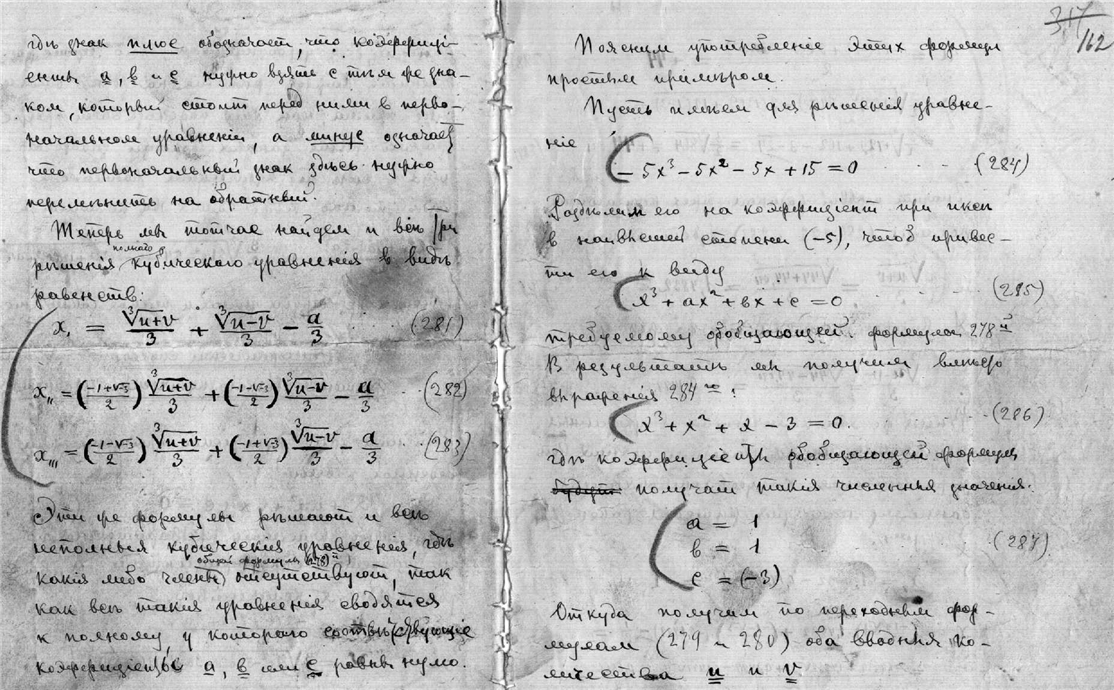 гдѣ знак плюс обозначает, что коэффиці-
енты а, в и с нужно взять с тѣм же зна-
ком, который стоит перед ними в перво-
начальном уравненіи, а минус означает
что первоначальный знак здѣсь нужно
перемѣнить на обратный.
Теперь мы тотчас найдем и всѣ три
рѣшенія полного кубического уравненія в видѣ
равенств:
x₁ = ∛(u+v)/3 + ∛(u−v)/3 − a/3 (281)
x₁₁ = ((−1+√−3)/2) ∛(u+v)/3 + ((−1−√−3)/2) ∛(u−v)/3 − a/3 (282)
x₁₁₁ = ((−1−√−3)/2) ∛(u+v)/3 + ((−1+√−3)/2) ∛(u−v)/3 − a/3 (283)
Эти же формулы рѣшают и всѣ
неполныя кубическія уравненія, гдѣ
какія либо члены общей формулы (278)й отсутствуют, так
как всѣ такія уравненія сводятся
к полному, у котораго
коэффиціенты а, в или с равны нулю.
317
162
Поясним употребленіе этих формул
простым примѣром.
Пусть имѣем для рѣшенія уравне-
ніе
− 5x³ − 5x² − 5x + 15 = 0 (284)
Раздѣлим его на коэффиціент при иксѣ
в наивысшей степени (−5), чтоб привес-
ти его к виду
x³ + ax² + вx + c = 0 (285)
требуемому обобщающей формулы 278й
В результатѣ мы получим вмѣсто
выраженія 284го:
x³ + x² + x − 3 = 0. (286)
гдѣ коэффиціенты обобщающей формулы
получат такія численныя значенія.
a = 1
в = 1 (287)
c = (−3)
Откуда получим по переходным фор-
мулам (279 и 280) оба вводныя ко-
личества u и v